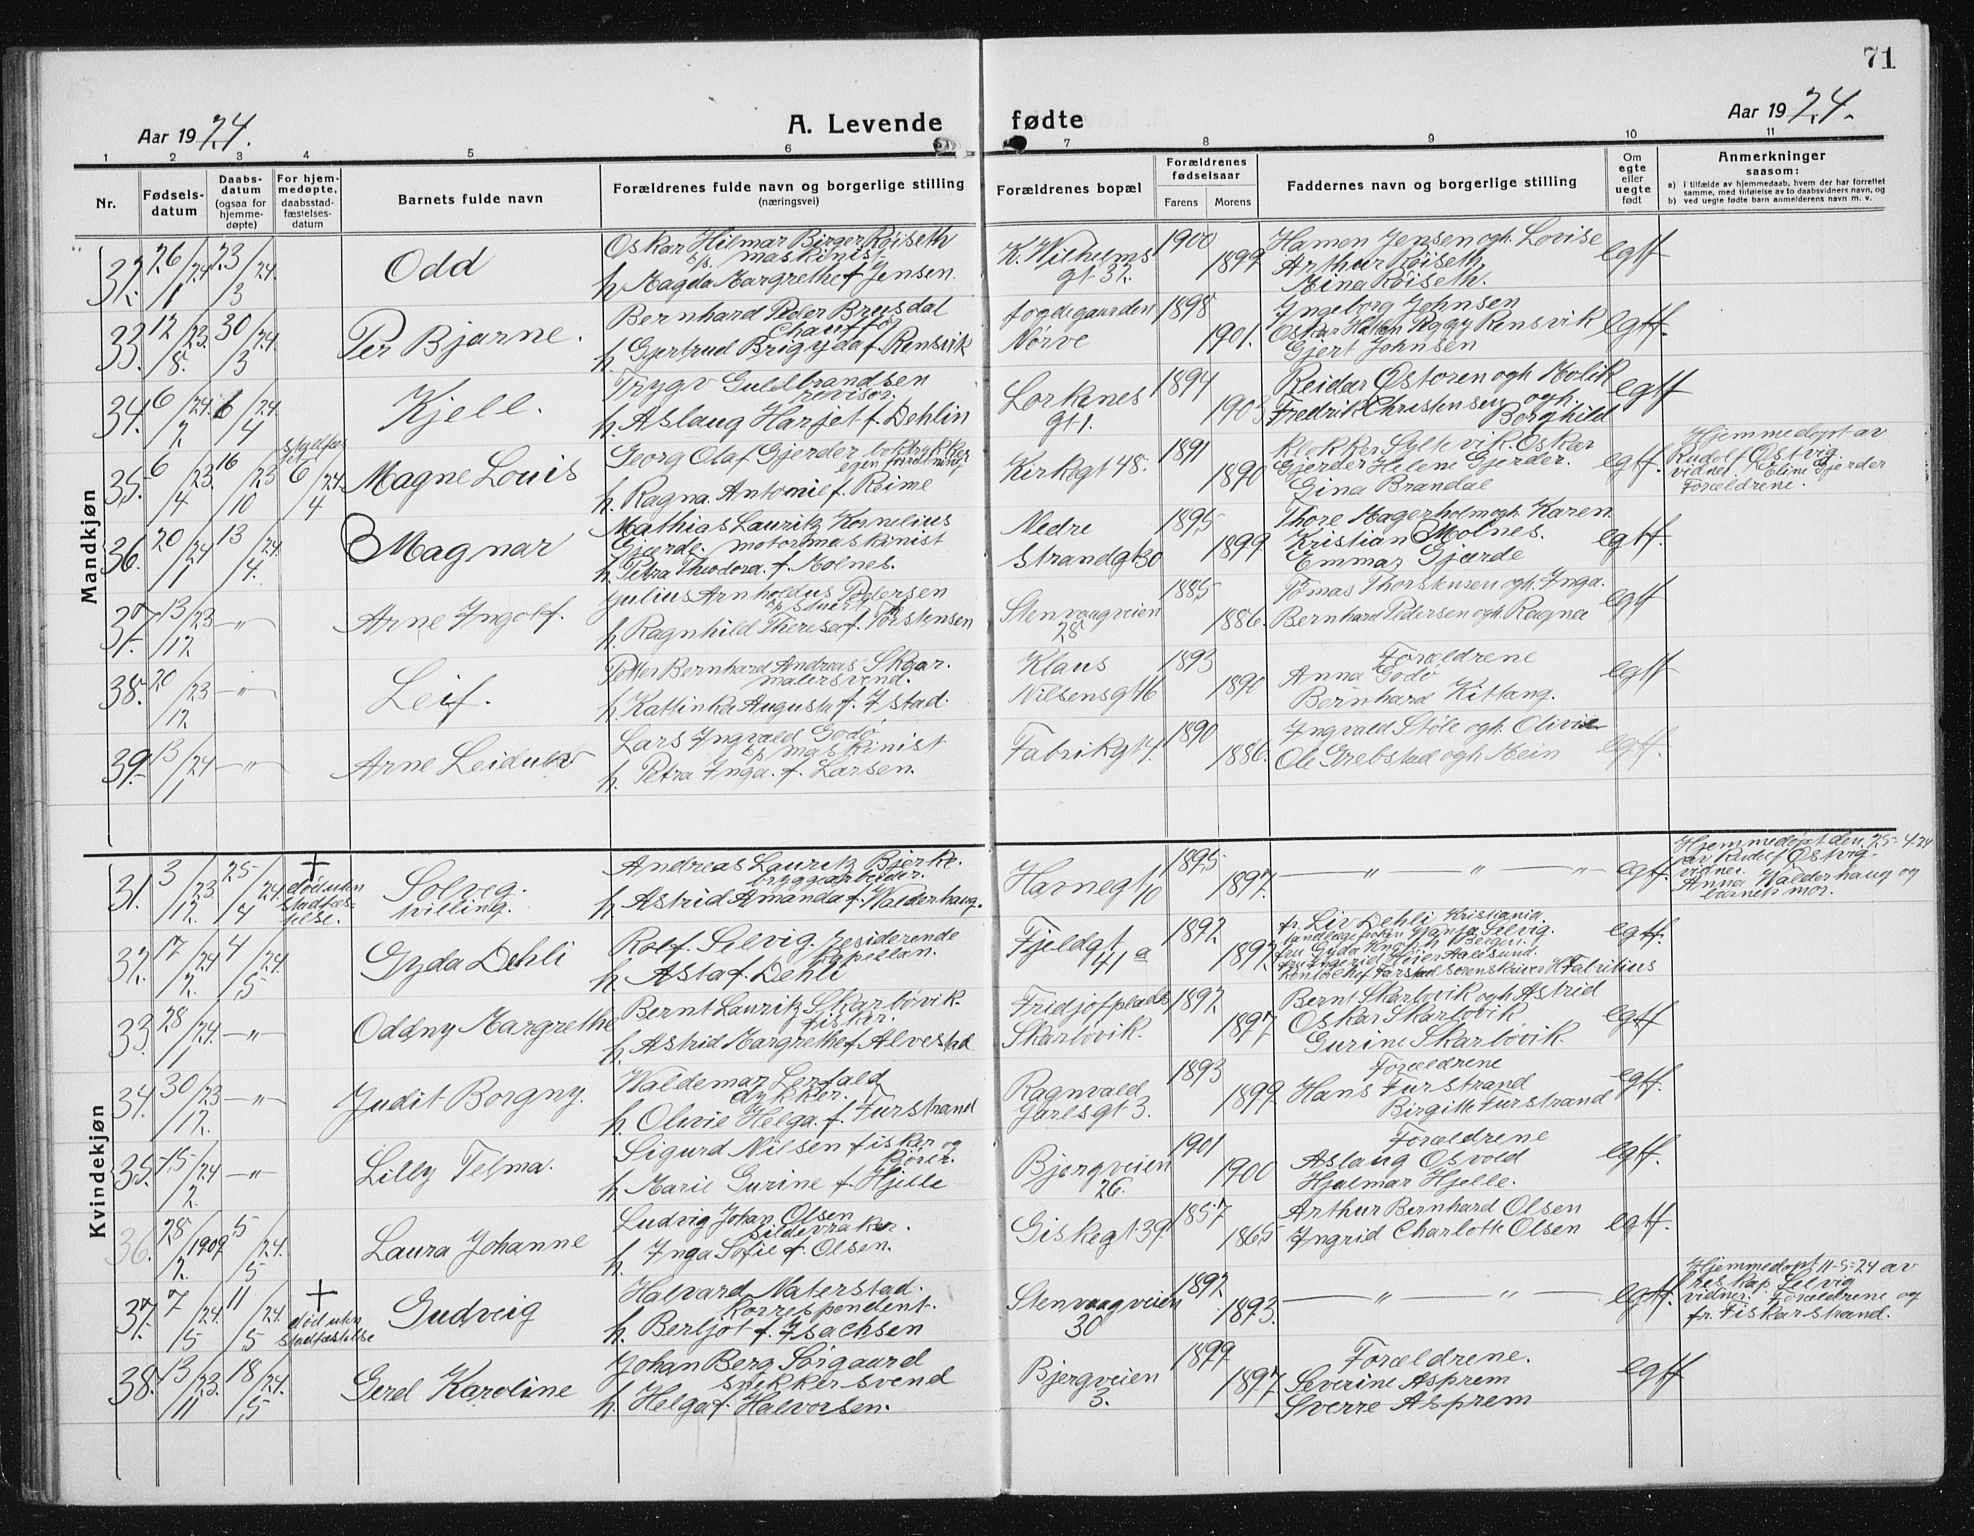 71
Aar 1924.
A. Levende fødte
Aar 1924.
1 2 3 4 5 6 7 8 9 10 11
Nr.
Fødselsdatum
Daabsdatum (ogsaa for hjemmedøpte)
For hjemmedøpte, daabsstadfæstelsesdatum
Barnets fulde navn
Forældrenes fulde navn og borgerlige stilling
(næringsvei)
Forældrenes bopæl
Forældrenes fødselsaar
Farens Morens
Faddernes navn og borgerlige stilling
Om egte eller uegte født
Anmerkninger
saasom:
a) i tilfælde av hjemmedaab, hvem der har forrettet samme, med tilføielse av to daabsvidners navn, og
b) ved uegte fødte barn anmelderens navn m. v.
Mandkjøn
32. 26/1 24 23/3 24 Odd
Oskar Hilmar Birger Røiseth
o/s. maskinist
h. Magda Margrethe f. Jensen.
K. Wilhelms
gt 32.
1900 1899
Hamon Jensen ogh. Lovise
Arthur Røiseth
Mina Røiseth.
egtf
33. 12/8 23. 30/3 24 Per Bjarne.
Bernhard Peder Brusdal
Chauffør
h. Gjertrud Brigyda f. Rensvik
Fogdegaarden
Nørve
1898 1901.
Ingeborg Johnsen
Oskar Peggy Rensvik
Gjert Johnsen
egtf.
34. 6/2 24. 6/4 24 Kjell.
Trygv Guldbrandsen
revisor.
h. Aslaug Harjet f. Dehlin
Lorkenes
gt 1.
1894 1903
Reidar Østoren ogh. Molik
Fredrik Christensen ogh.
Borghild
egtf
35. 6/4 23. 16/10 23 6/4 24.
Magne Louis
Georg Olaf Gjerder boktrykker
egen forretning
h. Ragna Antonie f. Reime
Kirkegt 48.
1891 1890
Klokker Syltevik. Oskar
Gjerder Helene Gjerder.
Gina Brandal
egtf.
Hjemmedøpt av
Rudolf Østvig.
vidner. Eline Gjerder
Forældrene.
36. 20/1 24 13/4. 24 Magnar
Mathias Lauritz Kornelius
Gjærde. motormaskinist
h. Petra Theodora. f. Molnes.
Nedre
Strandgt 30
1895 1899
Thore Magerholm ogh. Karen
Kristian Molnes.
Emma Gjærde
egtf.
37. 13/12 23 -"- Arne Ingolf.
Julius Arnholdus Pedersen
o/s stuert
h. Ragnhild Theresa f. Torstensen
Stenvaagveien
28
1885 1886.
Tomas Thorstensen ogh. Inga.
Bernhard Pedersen ogh. Ragna
egtf
38. 20/12 23 -"- Leif.
Petter Bernhard Andreas Skaar.
malersvend.
h. Kattinka Augusta f. Istad.
Klaus
Nilsensgt 16
1893 1890
Forældrene
Anna Godø
Bernhard Kittang.
egtf
39. 13/1 24 -"- Arne Leidulv
Lars Ingvald Godø
o/s maskinist
h. Petra Inga. f. Larsen.
Fabrikgt 4.
1890 1886.
Ingvald Støle ogh. Olivie
Ole Grebstad ogh Mein
egtf.
Kvindekjøn
31. 3/12 23. 25/4 24. †
død uten
stadfæs-
telse.
Solveig.
tvilling.
Andreas Lauritz Bjerke.
bryggearbeider.
h. Astrid Amanda f. Walderhaug.
Havnegt 10
1895 1897.
-"- -"-
egtf.
Hjemmedøpt den 25-4 24
av Rudolf Østvig.
vidner.
Anna Walderhaug og
barnets mor.
32. 17/2. 24 4/5 24. Gyda Dehli
Rolf. Selvig. residerende
kapellan.
h. Asta f. Dehli
Fjeldgt
41 a
1892. 1892.
fr. Liv Dehli Kristiania.
Selvig.
fru Gyda Knoph Bergen.
fru Ingerid Heier Aalesund.
Kontorchef Farstad sorenskriver H. Fabritius
egtf.
33. 28/1 24. -"- Oddny Margrethe
Bernt Lauritz Skarbøvik.
fisker.
h. Astrid Margrethe f. Alvestad
Fridjofplads
Skarbøvik.
1892. 1897
Bernt Skarbøvik ogh. Astrid
Oskar Skarbøvik
Gurine Skarbøvik.
egtf
34. 30/12. 23 -"- Judit Borgny.
Waldemar Lerfald
dykker.
h. Olivie Helga. f. Furstrand
Ragnvald
Jarlsgt 3.
1893 1899
Forældrene
Hans Furstrand
Birgitte Furstrand
egtf.
35. 15/2 24 -"- Lilly Telma.
Sigurd Nilsen fisker og
kører.
h. Marie Gurine f. Hjelle
Bjergveien
26.
1901 1900
Forældrene
Aslaug Osvold
Hjalmar Hjelle.
egtf.
36. 28/2. 1909 5/5 24. Laura Johanne
Ludvig Johan Olsen
sildevraker.
h. Inga Sofie f. Olsen.
Giskegt 39
1857 1865
Arthur Bernhard Olsen
Ingrid Charlotte Olsen
egtf.
37. 7/5 24. 11/5 24. †
død uten
stadfæstelse
Gudveig
Halvard Naterstad.
Korrespondent.
h. Berljot f. Isachsen
Stenvaagveien
30
1892. 1893.
-"- -"-
egtf.
Hjemmedøpt 11-5-24 av
res. kap. Selvig
vidner. Forældrene og
fr. Fiskarstrand.
38. 13/11 23. 18/5 24. Gerd Karoline
Johan Berg Sørgaard
snekkersvend
h. Helga f. Halvorsen.
Bjergveien
3.
1899 1897.
Forældrene.
Severine Asprem
Sverre Asprem
egtf